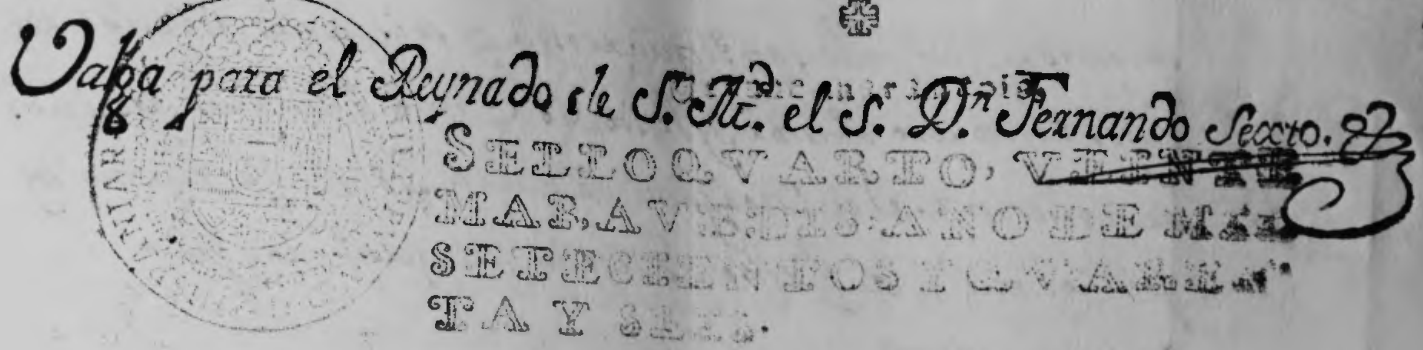 Valga para el Reynado de S. M.ᵈ el S. D.ⁿ Fernando Sexto.
SELLO QVARTO, VEINTE
MARAVEDIS, AÑO DE MIL
SETECIENTOS Y QVAREN
TA Y SEIS.
HISPANIAR